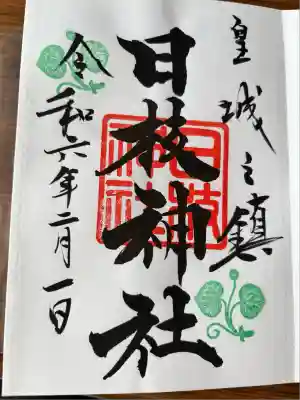 皇城之鎮
日枝神社
令和六年二月一日
日枝神社